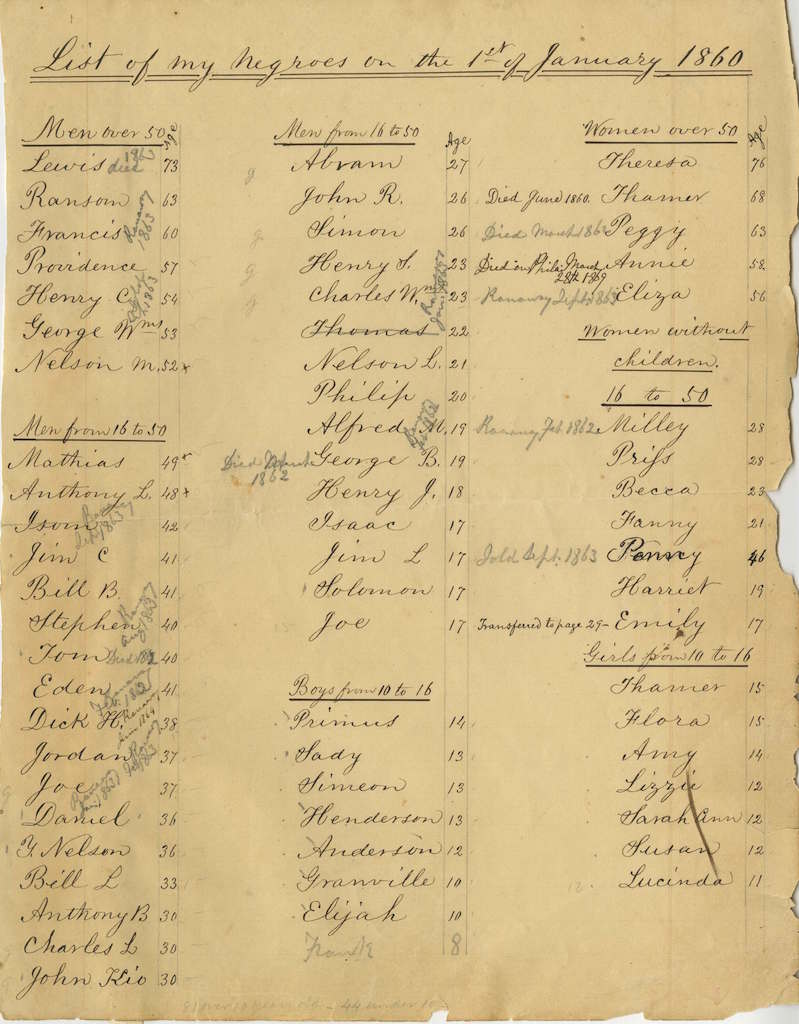 List of my Negroes on the 1st of January 1860
Men over 50 Age
Lewis died 1863 73
Ransom 63
Francis Runaway 1863 60
Providence 57
Henry C. 1863 54
George Wms 53
Nelson M. 52 x
Men from 16 to 50
Mathias 49 x
Anthony L. 48 x
Isom 1863 42
Jim C 41
Bill B. 41
Stephen 1863 40
Tom Died 1862 40
Eden 1862 41
Dick H. Runaway 1864 38
Jordan Runaway 1863 37
Joe Runaway Jan. 1863 37
Daniel 36
Y. Nelson 36
Bill L 33
Anthony B 30
Charles L 30
John Kio 30
Men from 16 to 50 Age
g Abram 27
John R. 26 Died June 1860.
g. Simon 26 Died March 1862
g Henry S. 23 Died in Phila. March 28th 1869
g Charles Wms Runaway Jan. 1863 23 Runaway Sept. 1863
Thomas 22
Nelson L. 21
Philip 20
Alfred M. 1862 19 Runaway Feb. 1862
Died March 1862 George B. 19
Henry J. 18
Isaac 17
Jim L 17 Sold Sept. 1863
Solomon 17
Joe 17 Transferred to page 29-
Boys from 10 to 16
Primus 14
Sady 13
Simeon 13
Henderson 13
Anderson 12
Granville 10
Elijah 10
Frank 8
Women over 50 Age
Theresa 76
Thamer 68
Peggy 63
Annie 58
Eliza 56
Women without
children.
16 to 50
Milley 28
Priss 28
Becca 23
Fanny 21
Penny 46
Harriet 19
Emily 17
Girls from 10 to 16
Thamer 15
Flora 15
Amy 14
Lizzie 12
Sarah Ann 12
Susan 12
Lucinda 11
44 under 10